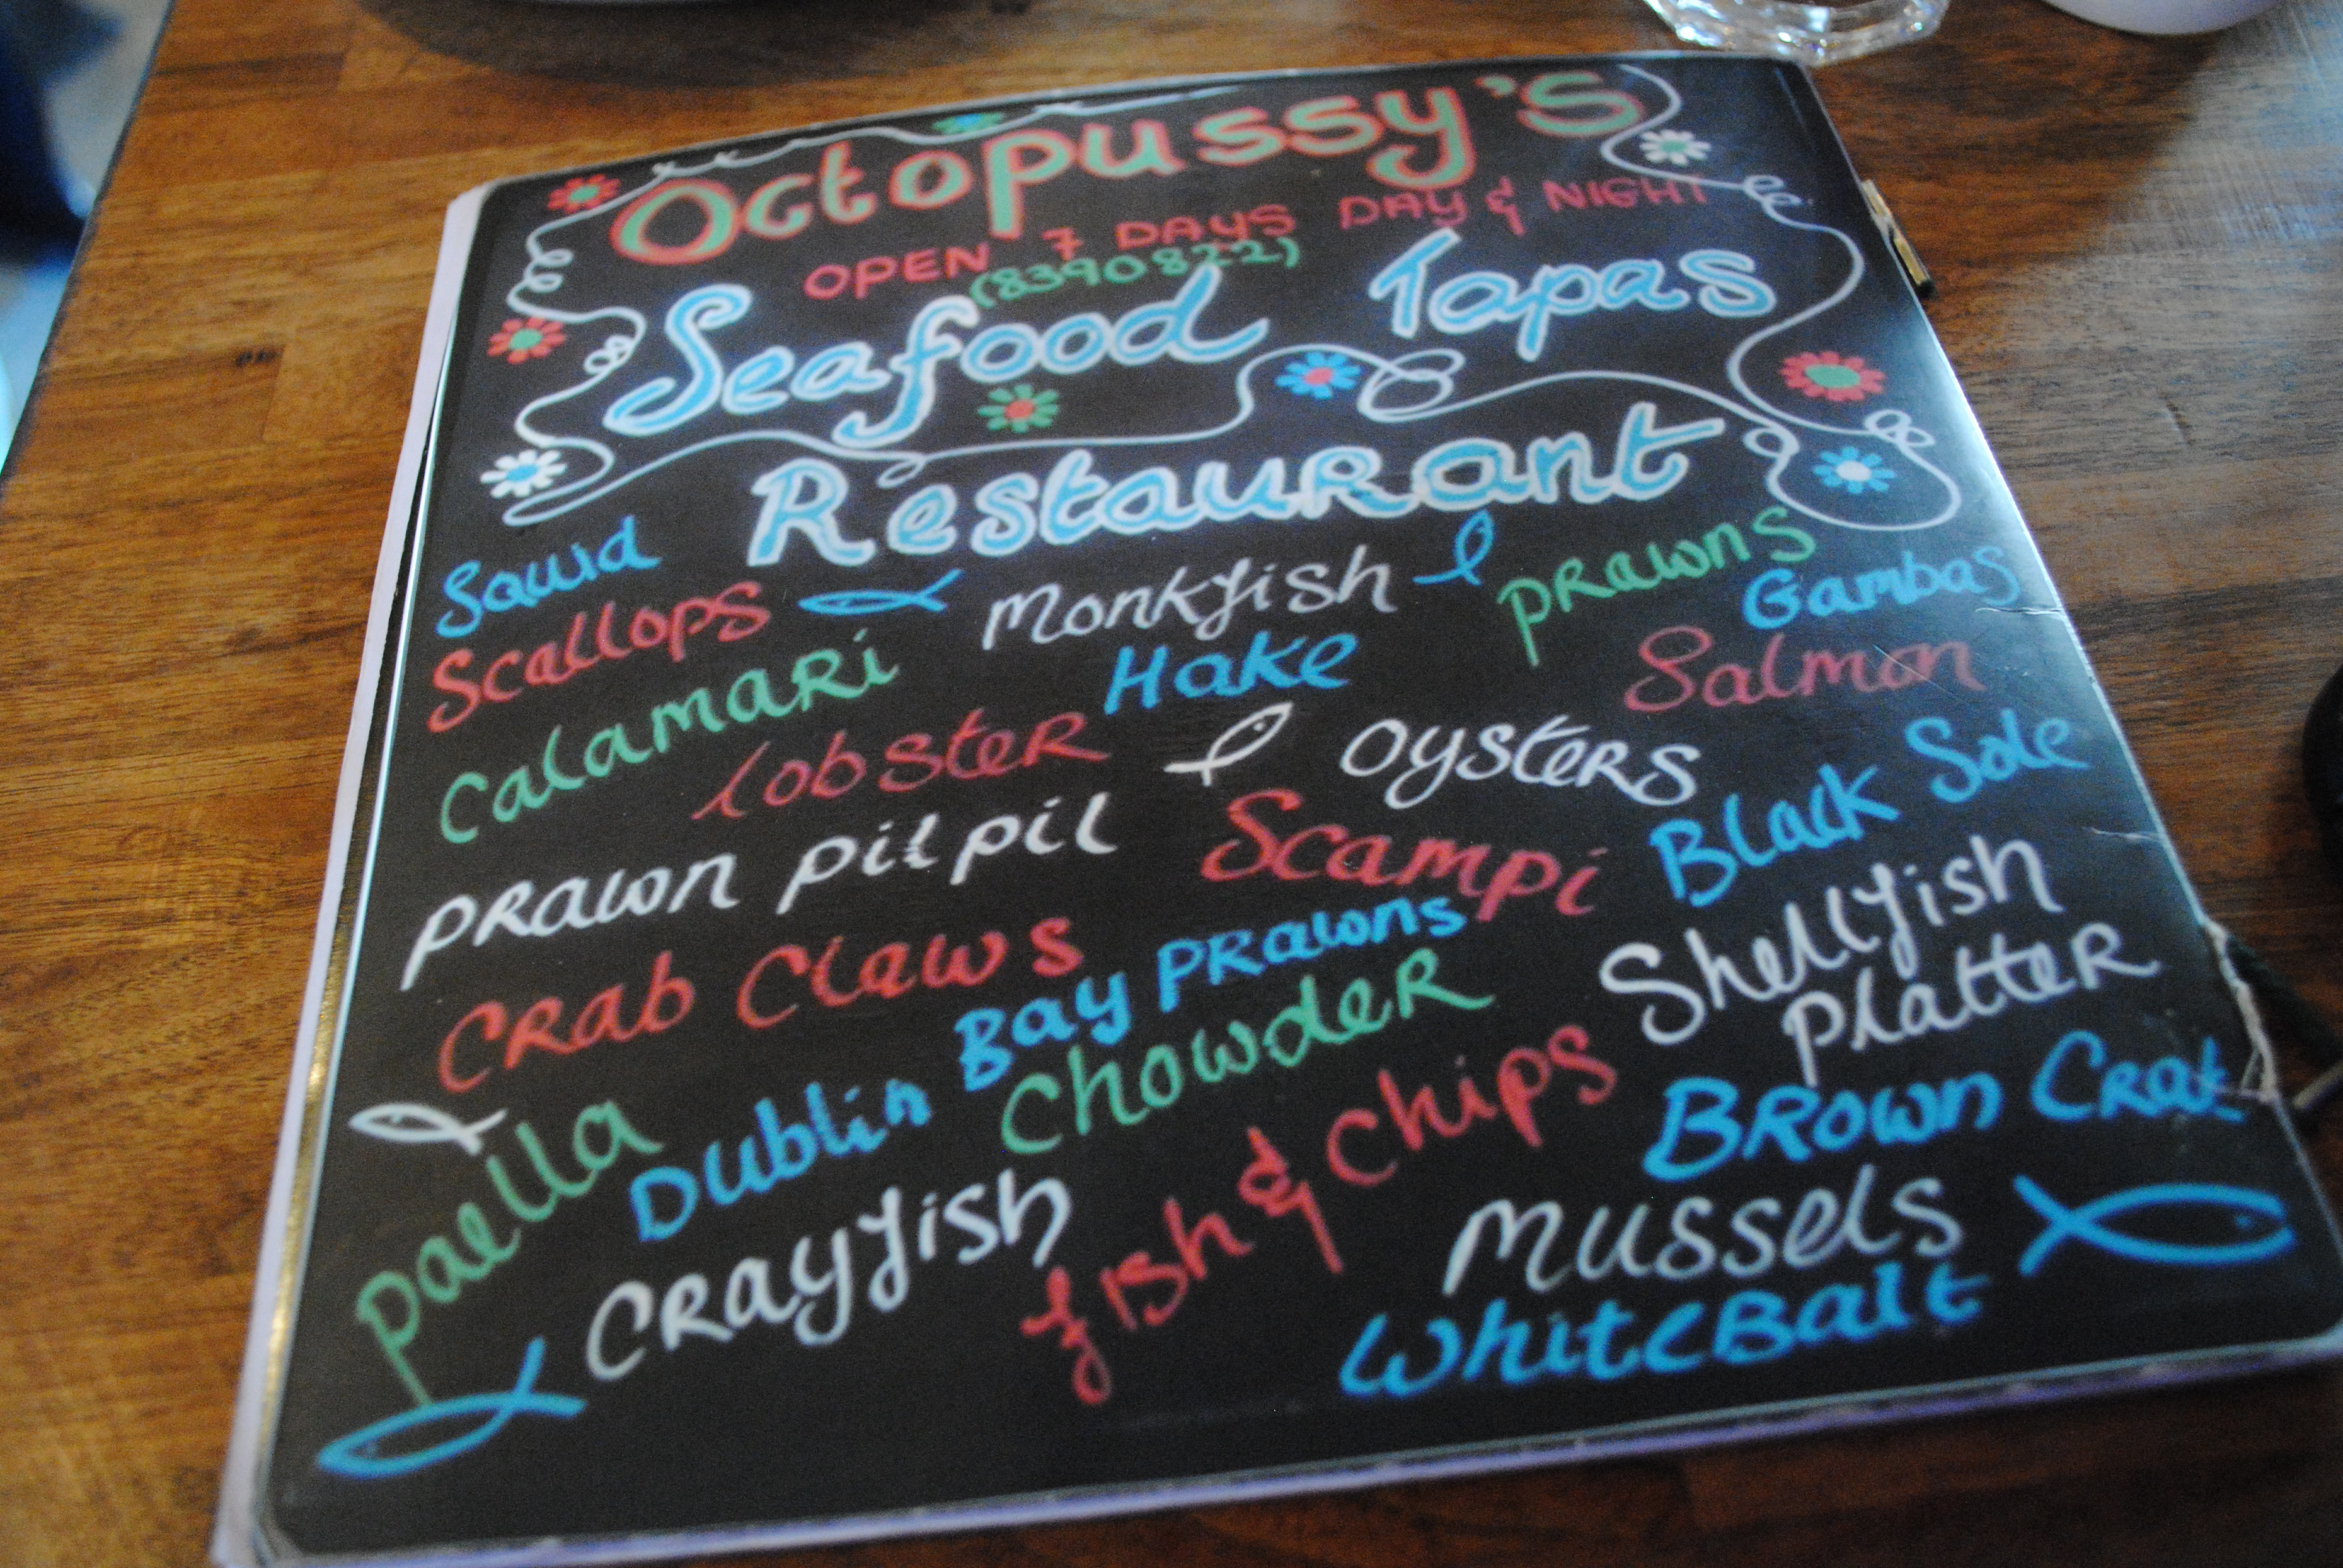 Octopussy's
OPEN 7 DAYS DAY & NIGHT
(8390822)
Seafood Tapas
Restaurant
Squid
Scallops
Monkfish
prawns
Gambas
Calamari
Hake
Salmon
lobster
oysters
Black Sole
prawn pil pil
Scampi
Shellfish
platter
Crab Claws
Dublin Bay prawns
Chowder
paella
Crayfish
fish & chips
Brown Crab
Mussels
WhiteBait